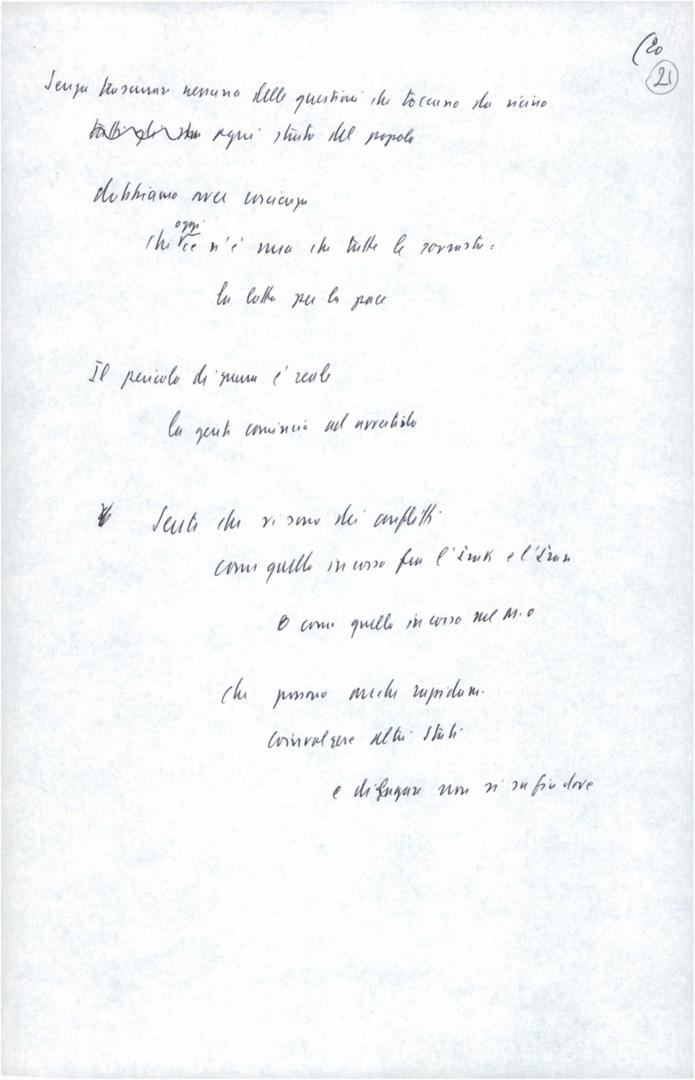 (20
21
Senza trascurare nessuna delle questioni che toccano da vicino
ogni strato del popolo
dobbiamo aver coscienza
oggi
che ce n'è una che tutte le sovrasta:
la lotta per la pace
Il pericolo di guerra è reale
la gente comincia ad avvertirlo
Sente che vi sono dei conflitti
come quello in corso fra l'Irak e l'Iran
o come quello in corso nel M.O
che possono anche rapidam.
coinvolgere altri Stati
e dilagare non si sa fin dove